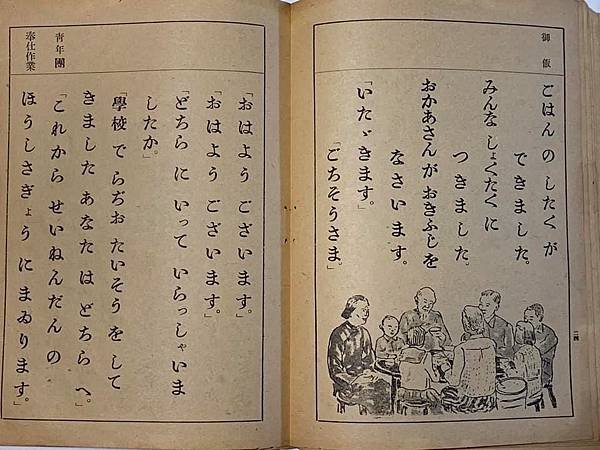 御飯
ごはん の したく が
できました。
みんな しょくたく に
つきました。
おかあさん が おきふじ を
なさいます。
「いたゞきます。」
「ごちそうさま。」
二四
青年團
奉仕作業
「おはよう ございます。」
「おはよう ございます。」
「どちら に いって いらっしゃいま
したか。」
「學校 で らぢお たいそう を して
きました あなた は どちら へ。」
「これから せいねんだん の
ほうしさぎょう に まゐります。」